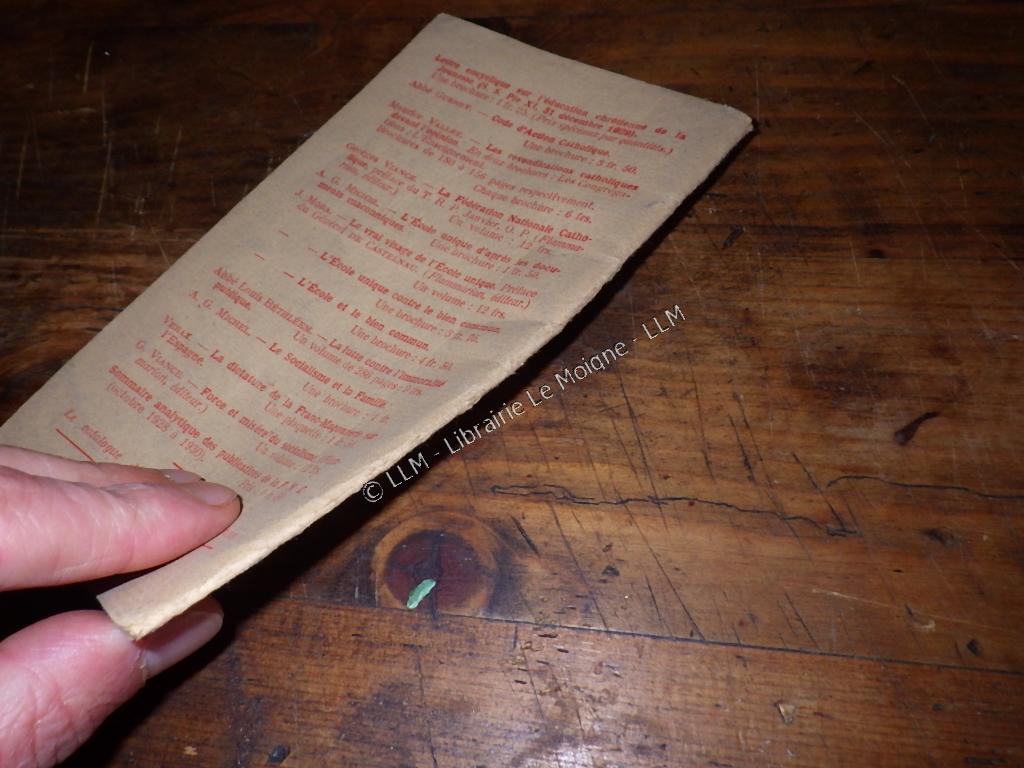 Lettre encyclique sur l'éducation chrétienne de la
jeunesse (S. S. Pie XI, 31 décembre 1929).
Une brochure : 1 fr. 25. (Prix spéciaux par quantités.)
Abbé GUERRY. — Code d'Action Catholique.
Une brochure : 3 fr. 50.
Maurice VALLET. — Les revendications catholiques
devant l'opinion. En deux brochures : Les Congréga-
tions ; L'Enseignement.
Brochures de 180 à 156 pages respectivement.
Chaque brochure : 6 frs.
Georges VIANCE. — La Fédération Nationale Catho-
lique, préface du T. R. P. Janvier, O. P. (Flamma-
rion, éditeur.) Un volume : 12 frs.
A. G. MICHEL. — L'École unique d'après les docu-
ments maçonniques. Une brochure : 1 fr. 50.
J. MOHA. — Le vrai visage de l'École unique. Préface
du Général DE CASTELNAU. (Flammarion, éditeur.)
Un volume : 12 frs.
— — L'École unique contre le bien commun.
Une brochure : 3 fr.
— — L'École et le bien commun.
Une brochure : 1 fr. 50.
Abbé Louis BETHLÉEM. — La lutte contre l'immoralité
publique. Un volume de 286 pages :
A. G. MICHEL. — Le Socialisme et la Famille.
Une brochure :
VERAX. — La dictature de la Franc-Maçonnerie sur
l'Espagne. Une plaquette :
G. VIANCE. — Force et misère du socialisme
marion, éditeur.) Un volume :
Sommaire analytique des publications de la
(octobre 1928 à 1930).
Le
catalogue
© LLM - Librairie Le Moigne - LLM